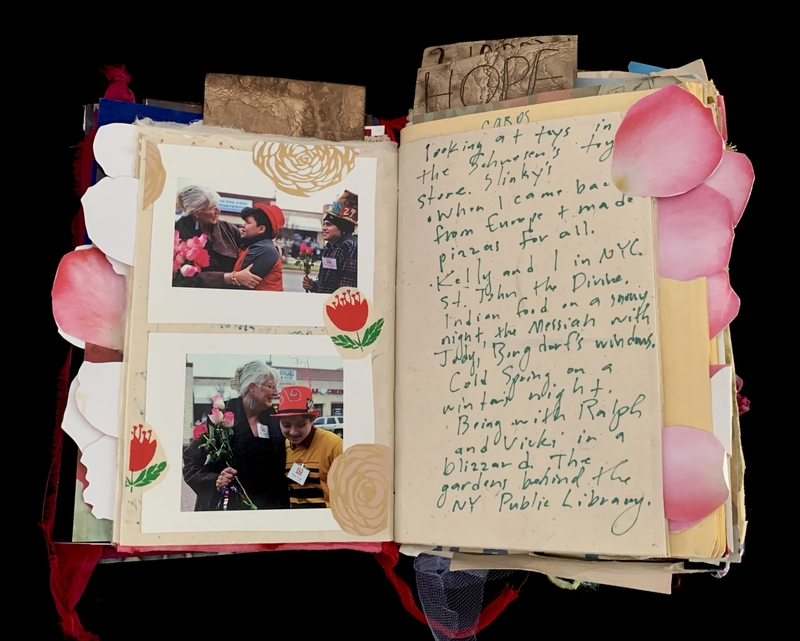 29
HOPE
CARDS
looking at toys in
the Schwosen's toy
store. Slinky's
. When I came back
from Europe + made
pizzas for all.
. Kelly and I in NYC.
St. John the Divine.
Indian food on a snowy
night, the Messiah with
Judy, Bergdorf's windows.
Cold Spring on a
wintair night.
Being with Ralph
and Vicki in a
blizzard. The
gardens behind the
NY Public Library.